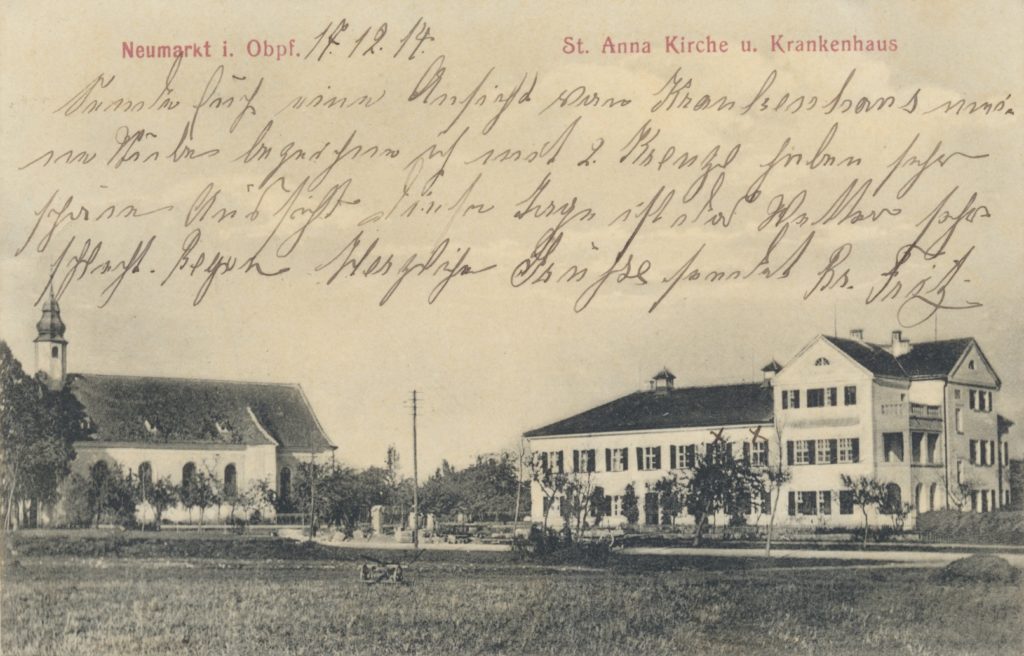 Neumarkt i. Obpf. 17.12.14.
St. Anna Kirche u. Krankenhaus
Sende Euch eine Ansicht vom Krankenhaus mei-
ne bezeichne ich mit 2 Kreuze haben sehr
schöne Aussicht diese Tage ist das Wetter sehr
schlecht. Regen Herzliche Grüße sendet Br. Fritz